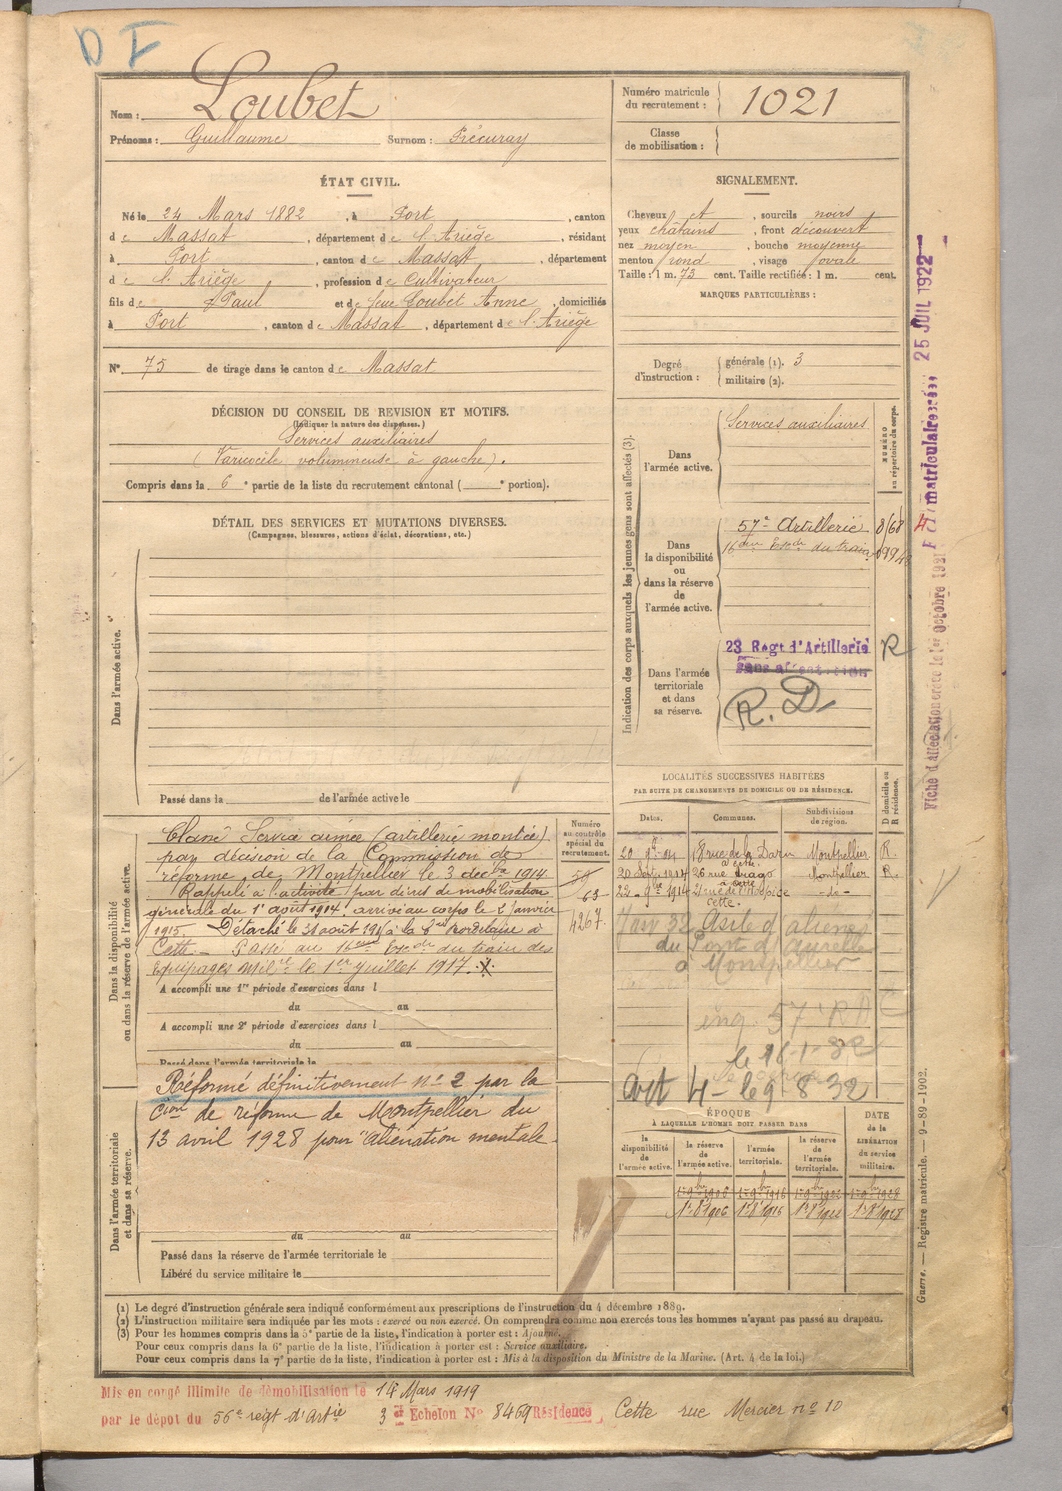 D I
Nom : Loubet
Prénoms : Guillaume Surnom : Précuray
Numéro matricule du recrutement : 1021
Classe de mobilisation :
ÉTAT CIVIL.
Né le 24 Mars 1882, à Port, canton
de Massat, département de l'Ariège, résidant
à Port, canton de Massat, département
de l'Ariège, profession de Cultivateur
fils de Paul et de Loubet Anne, domiciliés
à Port, canton de Massat, département de l'Ariège
N° 75 de tirage dans le canton de Massat
SIGNALEMENT.
Cheveux et, sourcils noirs
yeux châtains, front découvert
nez moyen, bouche moyenne
menton rond, visage ovale
Taille : 1 m. 73 cent. Taille rectifiée : 1 m. cent.
MARQUES PARTICULIÈRES :
Degré d'instruction : générale (1). 3
militaire (2).
DÉCISION DU CONSEIL DE REVISION ET MOTIFS.
(Indiquer la nature des dispenses.)
Services auxiliaires
(Varicocèle volumineuse à gauche).
Compris dans la 6e partie de la liste du recrutement cantonal ( e portion).
DÉTAIL DES SERVICES ET MUTATIONS DIVERSES.
(Campagnes, blessures, actions d'éclat, décorations, etc.)
Dans l'armée active.
Passé dans la de l'armée active le
Indication des corps auxquels les jeunes gens sont affectés (3).
NUMÉRO au répertoire du corps.
Dans l'armée active.
Services auxiliaires
Dans la disponibilité ou dans la réserve de l'armée active.
57e Artillerie
16eme Eron du train
Dans l'armée territoriale et dans sa réserve.
23 Regt d'Artillerie R
Sans affectation
R. D
Dans la disponibilité ou dans la réserve de l'armée active.
Numéro au contrôle spécial du recrutement.
Classé Service armée (artillerie montée)
par décision de la Commission de
réforme de Montpellier le 3 decbre 1914
Rappelé à l'activité par décret de mobilisation
générale du 1er août 1914. arrivé au corps le 2 Janvier
1915. Détaché le 31 août 191 à la à
Cette. Passé au 16eme Eron du train des
Equipages Milres le 1er Juillet 1917.
63
4267
A accompli une 1re période d'exercices dans l
du au
A accompli une 2e période d'exercices dans l
du au
Passé dans l'armée territoriale le
Dans l'armée territoriale et dans sa réserve.
Réformé définitivement n° 2 par la
Cion de réforme de Montpellier du
13 avril 1928 pour "aliénation mentale
du au
Passé dans la réserve de l'armée territoriale le
Libéré du service militaire le
LOCALITÉS SUCCESSIVES HABITÉES
PAR SUITE DE CHANGEMENTS DE DOMICILE OU DE RÉSIDENCE.
D domicile ou R résidence.
Dates. Communes. Subdivisions de région.
20 9bre 04 8 rue de la Montpellier R.
à Cette.
20 Sept 1914 26 rue Montpellier R.
à Cette
22 9bre 1914 21 rue de l'Hospice -d-
Cette.
Janv 32 Asile d'aliénés
du Pont d'Aurelle
à Montpellier
57e RA
le 16-1-32
art 4 le 9 8 32
ÉPOQUE
À LAQUELLE L'HOMME DOIT PASSER DANS
DATE de la LIBÉRATION du service militaire.
la disponibilité de l'armée active. la réserve de l'armée active. l'armée territoriale. la réserve de l'armée territoriale.
1er 9bre 1906 1er 9bre 1916 1er 9bre 1922 1er 9bre 1928
1er 8 1906 1er 8 1916 1er 8 1922 1er 8 1928
(1) Le degré d'instruction générale sera indiqué conformément aux prescriptions de l'instruction du 4 décembre 1889.
(2) L'instruction militaire sera indiquée par les mots : exercé ou non exercé. On comprendra comme non exercés tous les hommes n'ayant pas passé au drapeau.
(3) Pour les hommes compris dans la 5e partie de la liste, l'indication à porter est : Ajourné.
Pour ceux compris dans la 6e partie de la liste, l'indication à porter est : Service auxiliaire.
Pour ceux compris dans la 7e partie de la liste, l'indication à porter est : Mis à la disposition du Ministre de la Marine. (Art. 4 de la loi.)
Mis en congé illimité de démobilisation le 14 Mars 1919
par le dépôt du 56e regt d'Artie 3e Echelon N° 8469 Résidence, Cette rue Mercier n° 10
Fiche d'affectation créée le 1er Octobre 1921
matriculaire créée 25 JUIL 1922
Guerre. — Registre matricule. — 9-89-1902.